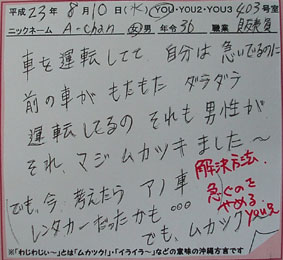 平成23年8月10日(水) YOU・YOU2・YOU3 403号室
ニックネーム A-chan 女・男 年令36 職業 販売員
車を運転してて 自分は急いでるのに
前の車が もたもた ダラダラ
運転してるの それも男性が
それ、マジムカツキました〜
でも、今、考えたら アノ車
レンタカーだったかも…
でも、ムカツク
解決方法、
急ぐのを
やめる
YOU兄
※「わじわじぃ〜」とは「ムカツク!」・「イライラ〜」などの意味の沖縄方言です